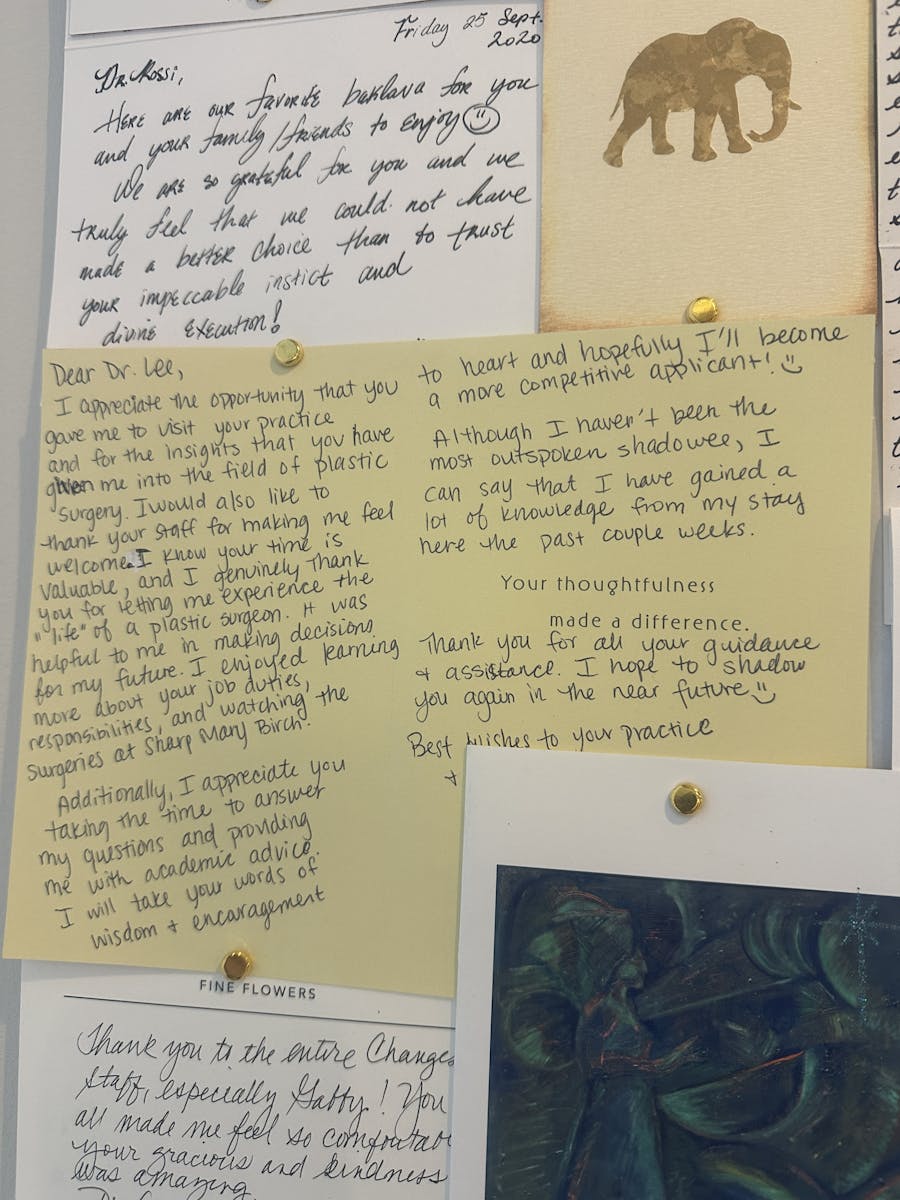 Friday 25 Sept.
2020
Dr. Rossi,
Here are our favorite baklava for you
and your family/friends to enjoy ☺
We are so grateful for you and we
truly feel that we could not have
made a better choice than to trust
your impeccable instict and
divine execution!
Dear Dr. Lee,
I appreciate the opportunity that you
gave me to visit your practice
and for the insights that you have
given me into the field of plastic
surgery. I would also like to
thank your staff for making me feel
welcome. I know your time is
valuable, and I genuinely thank
you for letting me experience the
"life" of a plastic surgeon. It was
helpful to me in making decisions
for my future. I enjoyed learning
more about your job duties,
responsibilities, and watching the
surgeries at Sharp Mary Birch.
Additionally, I appreciate you
taking the time to answer
my questions and providing
me with academic advice.
I will take your words of
wisdom + encouragement
to heart and hopefully I'll become
a more competitive applicant! ☺
Although I haven't been the
most outspoken shadowee, I
can say that I have gained a
lot of knowledge from my stay
here the past couple weeks.
Your thoughtfulness
made a difference.
Thank you for all your guidance
+ assistance. I hope to shadow
you again in the near future ☺
Best wishes to your practice
+
FINE FLOWERS
Thank you to the entire Changes
staff, especially Gabby! You
all made me feel so comfortab
your gracious and kindness
was amazing.